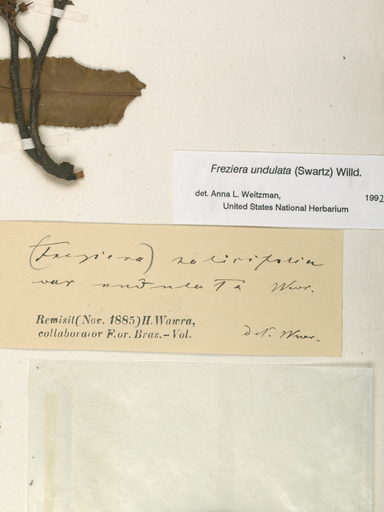 Freziera undulata (Swartz) Willd.
det. Anna L. Weitzman, 1992
United States National Herbarium
(Freziera) salicifolia
var undulata Wwr.
Remisit (Nov. 1885) H. Wawra,
collaborator F.or. Bras. – Vol.
det. Wwr.